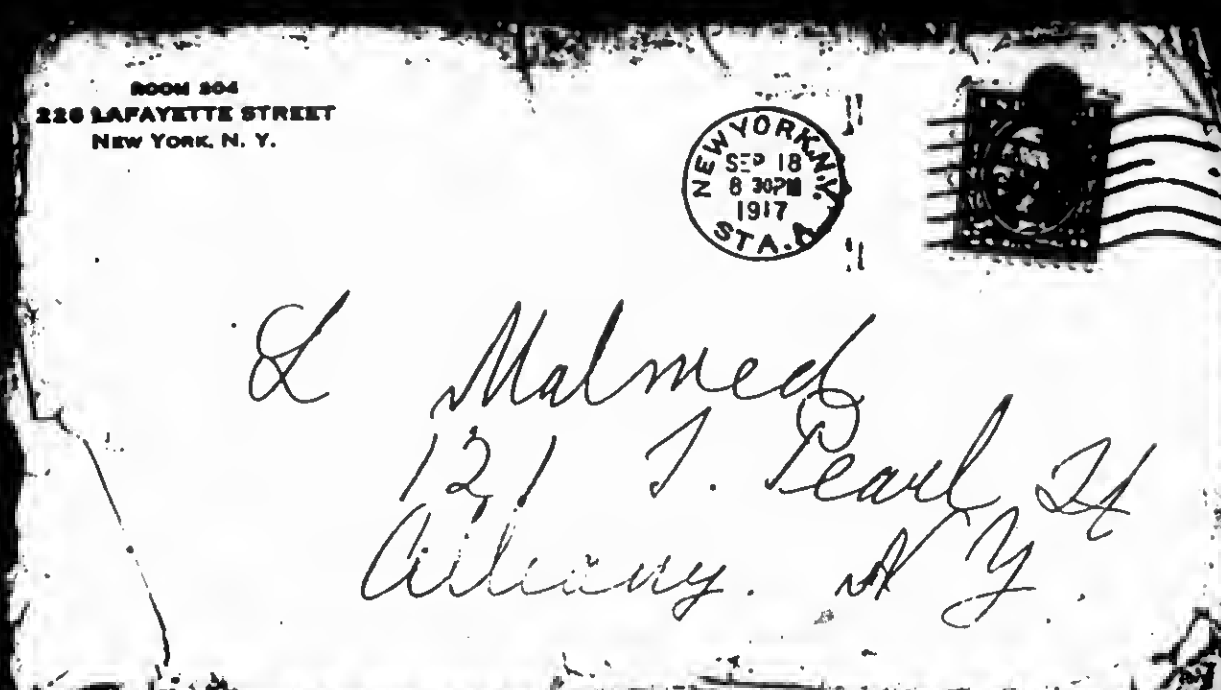 ROOM 204
226 LAFAYETTE STREET
NEW YORK, N. Y.
NEW YORK, N.Y.
SEP 18
8 30 PM
1917
STA. A
L Malmed
121 S. Pearl St
Albany. N Y.